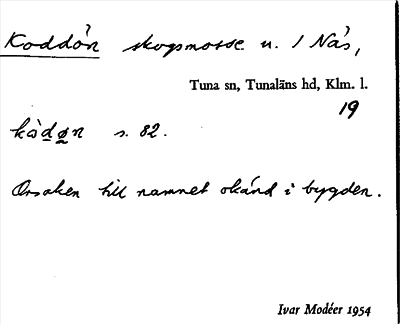 Koddön skogsmosse u. 1 Näs,
Tuna sn, Tunaläns hd, Klm. l.
19
kàdøn s. 82.
Orsaken till namnet okänd i bygden.
Ivar Modéer 1954